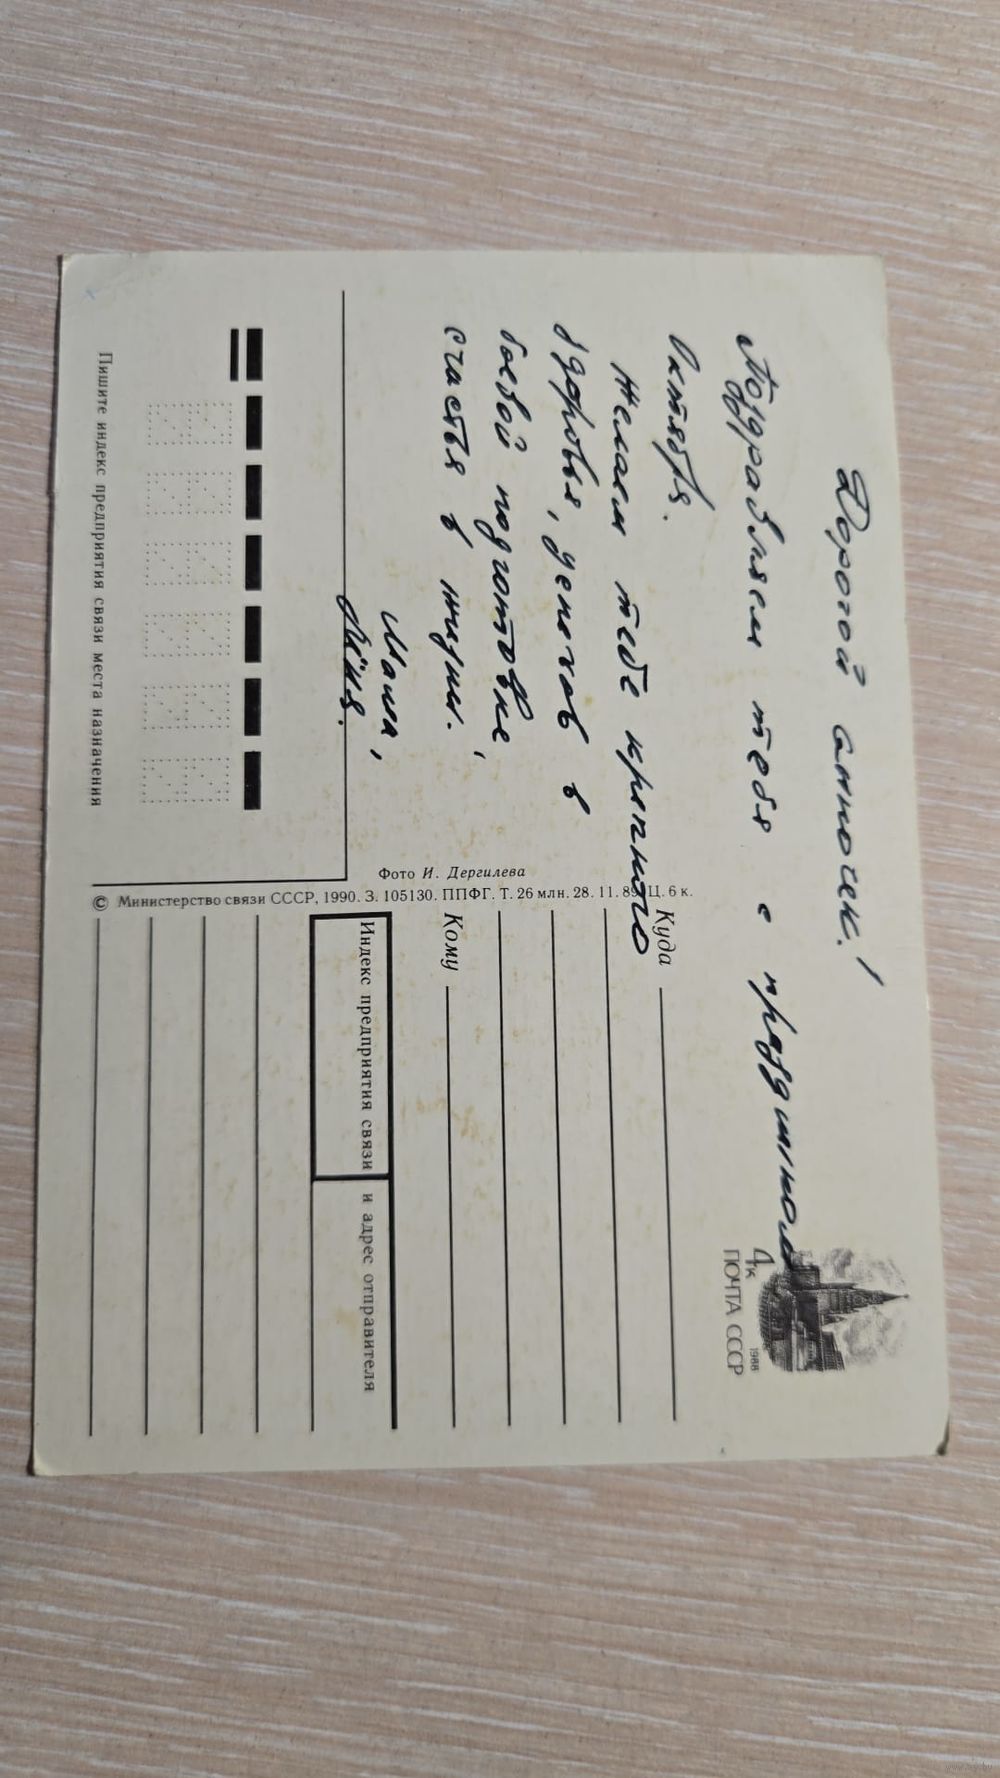 Дорогой сыночек!
Поздравляем тебя с праздником
Октября.
Желаем тебе крепкого
здоровья, успехов в
боевой подготовке,
счастья в жизни.
Мама,
Лёня.
4к
ПОЧТА СССР
1988
Куда
Кому
Индекс предприятия связи и адрес отправителя
Фото И. Дергилева
© Министерство связи СССР, 1990. З. 105130. ППФГ. Т. 26 млн. 28. 11. 89. Ц. 6 к.
Пишите индекс предприятия связи места назначения